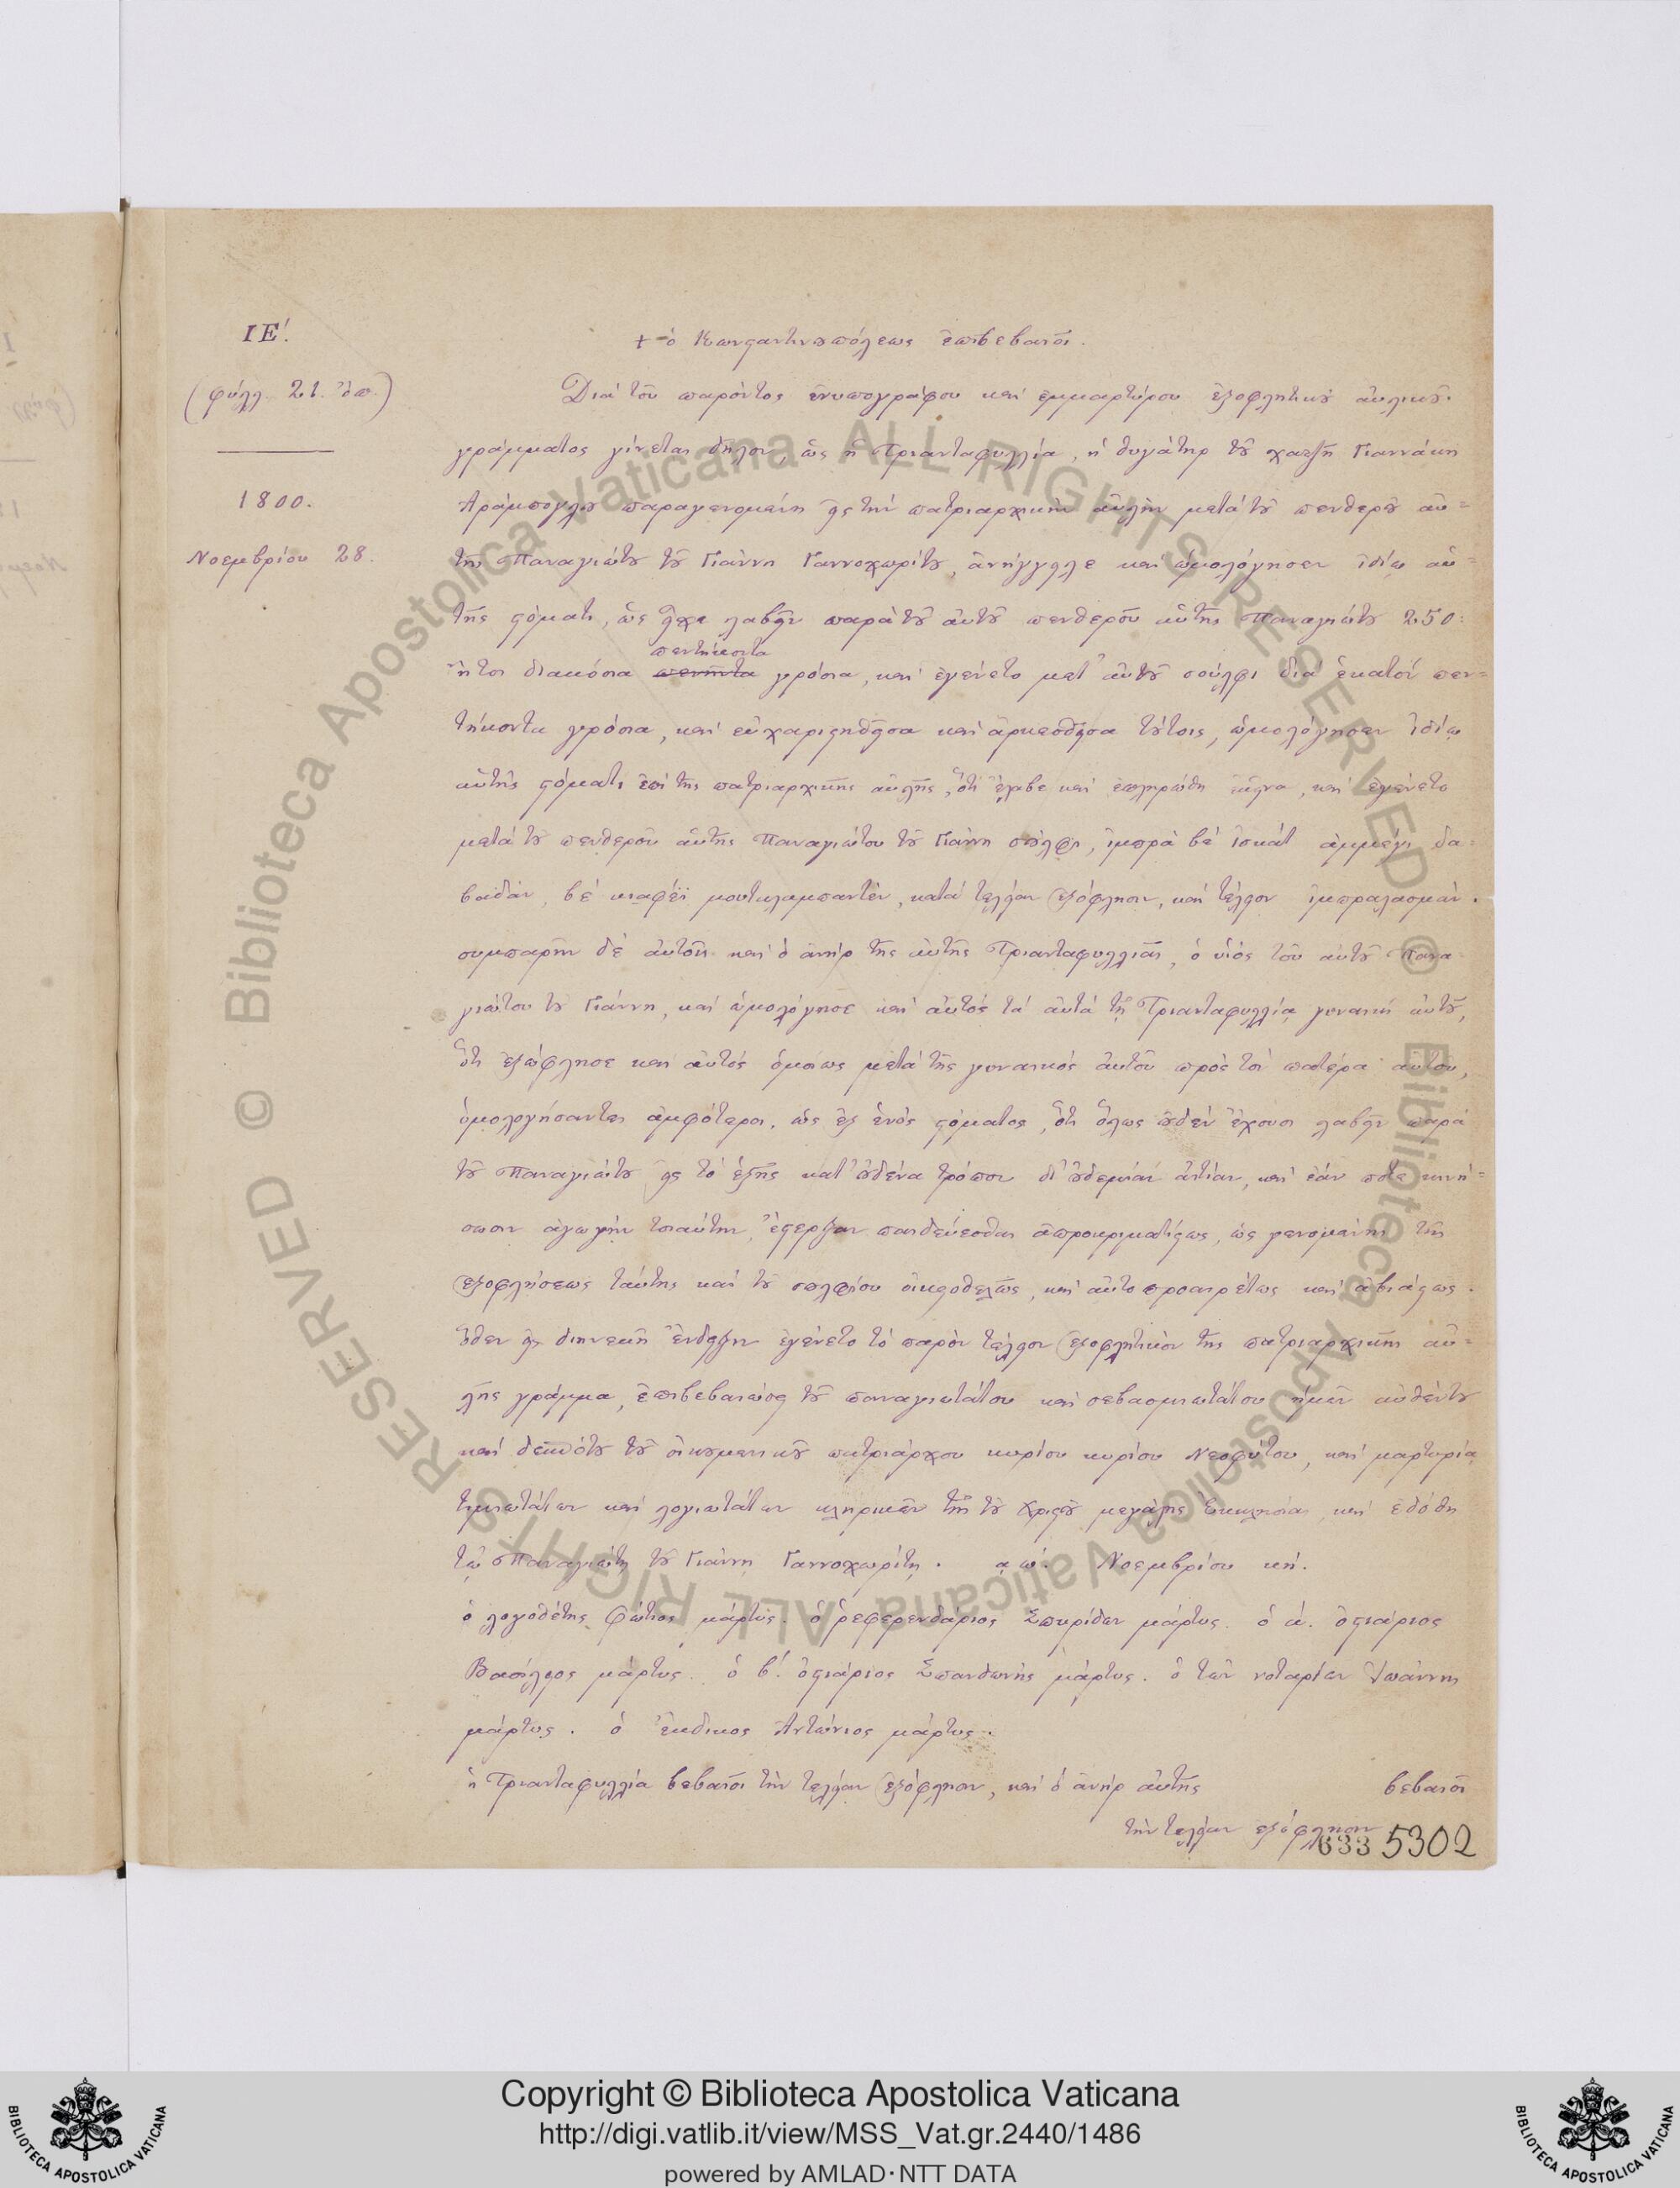 ΙΕ΄.
(φύλλ. 21. ὄπ.)
1800.
Νοεμβρίου 28.
+ ὁ Κωνσταντινουπόλεως ἐπιβεβαιοῖ.
Διὰ τοῦ παρόντος ἐνυπογράφου καὶ ἐμμαρτύρου ἐξοφλητικοῦ αὐλικοῦ
γράμματος γίνεται δῆλον, ὡς ἡ Τριανταφυλλία, ἡ θυγάτηρ τοῦ χατζῆ Γιαννάκη
Ἀράμπογλου παραγενομένη εἰς τὴν πατριαρχικὴν αὐλὴν μετὰ τοῦ πενθεροῦ αὐ=
τῆς Παναγιώτου τοῦ Γιάννη Γαννοχωρίτου, ἀνήγγειλε καὶ ὡμολόγησεν ἰδίῳ αὐ=
τῆς στόματι, ὡς εἶχε λαβεῖν παρὰ τοῦ αὐτοῦ πενθεροῦ αὐτῆς Παναγιώτου 250:
πεντήκοντα
ἤτοι διακόσια γρόσια, καὶ ἐγένετο μετ' αὐτοῦ σούλφι διὰ ἑκατὸν πεν=
τήκοντα γρόσια, καὶ εὐχαριστηθεῖσα καὶ ἀρκεσθεῖσα τούτοις, ὡμολόγησεν ἰδίῳ
αὐτῆς στόματι ἐπὶ τῆς πατριαρχικῆς αὐλῆς, ὅτι ἔλαβε καὶ ἐπληρώθη ἐκεῖνα, καὶ ἐγένετο
μετὰ τοῦ πενθεροῦ αὐτῆς Παναγιώτου τοῦ Γιάννη σούλφι, ἰμπρὰ βὲ ἰσκὰτ ἀμμέγι δα=
βαδὰν, βὲ κιαφέϊ μουταλαμπαντὲν, κατὰ τελείαν ἐξόφλησιν, καὶ τέλειον ἰμπραλασμάν.
συμπαρὼν δὲ αὐτοῖς καὶ ὁ ἀνὴρ τῆς αὐτῆς Τριανταφυλλιᾶς, ὁ υἱὸς τοῦ αὐτοῦ Πανα=
γιώτου τοῦ Γιάννη, καὶ ὡμολόγησε καὶ αὐτὸς τὰ αὐτὰ τῇ Τριανταφυλλίᾳ γυναικὶ αὐτοῦ,
ὅτι ἐξώφλησε καὶ αὐτὸς ὁμοίως μετὰ τῆς γυναικὸς αὐτοῦ πρὸς τὸν πατέρα αὐτοῦ,
ὁμολογήσαντες ἀμφότεροι, ὡς ἐξ ἑνὸς στόματος, ὅτι ὅλως οὐδὲν ἔχουσι λαβεῖν παρὰ
τοῦ Παναγιώτου εἰς τὸ ἑξῆς κατ' οὐδένα τρόπον δι' οὐδεμίαν αἰτίαν, καὶ ἐάν ποτε κινή=
σωσιν ἀγωγὴν τοιαύτην, ἔστερξαν παιδεύεσθαι ἀπροκριματίστως, ὡς γενομένης τῆς
ἐξοφλήσεως ταύτης καὶ τοῦ σουλφίου οἰκειοθελῶς, καὶ αὐτοπροαιρέτως καὶ ἀβιάστως.
ὅθεν εἰς διηνεκῆ ἔνδειξιν ἐγένετο τὸ παρὸν τέλειον ἐξοφλητικὸν τῆς πατριαρχικῆς αὐ=
λῆς γράμμα, ἐπιβεβαιώσει τοῦ παναγιωτάτου καὶ σεβασμιωτάτου ἡμῶν αὐθέντου
καὶ δεσπότου τοῦ οἰκουμενικοῦ πατριάρχου κυρίου κυρίου Νεοφύτου, καὶ μαρτυρίᾳ
τιμιωτάτων καὶ λογιωτάτων κληρικῶν τῆς τοῦ Χριστοῦ μεγάλης Ἐκκλησίας καὶ ἐδόθη
τῷ Παναγιώτῃ τοῦ Γιάννη Γαννοχωρίτῃ. αω΄. Νοεμβρίου κη΄.
ὁ λογοθέτης Φώτιος μάρτυς. ὁ ῥεφερενδάριος Σπυρίδων μάρτυς. ὁ α΄. ὀστιάριος
Βασίλειος μάρτυς. ὁ β΄. ὀστιάριος Σπανδωνὴς μάρτυς. ὁ τῶν νοταρίων Ἰωάννης
μάρτυς. ὁ ἔκδικος Ἀντώνιος μάρτυς.
ἡ Τριανταφυλλία βεβαιοῖ τὴν τελείαν ἐξόφλησιν, καὶ ὁ ἀνὴρ αὐτῆς βεβαιοῖ
τὴν τελείαν ἐξόφλησιν
633 5302
© Biblioteca Apostolica Vaticana ALL RIGHTS RESERVED © Biblioteca Apostolica Vaticana ALL RIGHTS RESERVED
Copyright © Biblioteca Apostolica Vaticana
http://digi.vatlib.it/view/MSS_Vat.gr.2440/1486
powered by AMLAD·NTT DATA
BIBLIOTECA APOSTOLICA VATICANA
BIBLIOTECA APOSTOLICA VATICANA